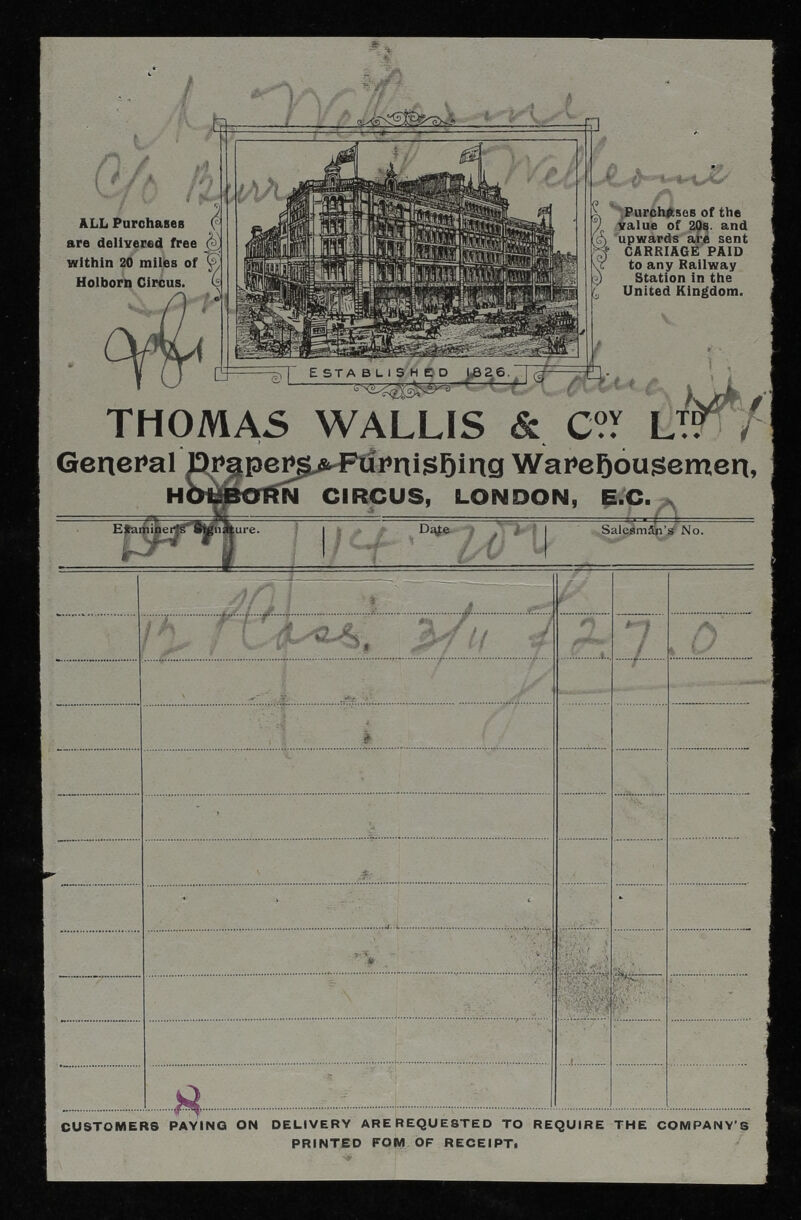 Mr Wellcome
c/o Burr Wellcome
ALL Purchases
are delivered free
within 20 miles of
Holborn Circus.
Purchases of the
value of 20s. and
upwards are sent
CARRIAGE PAID
to any Railway
Station in the
United Kingdom.
ESTABLISHED 1826.
THOMAS WALLIS & COY LTD
General Drapers & Furnishing Warehousemen,
HOLBORN CIRCUS, LONDON, E.C.
Examiner's Signature. Date Salesman's No.
12 3/11 £2.7.0
8
CUSTOMERS PAYING ON DELIVERY ARE REQUESTED TO REQUIRE THE COMPANY'S
PRINTED FOM OF RECEIPT.